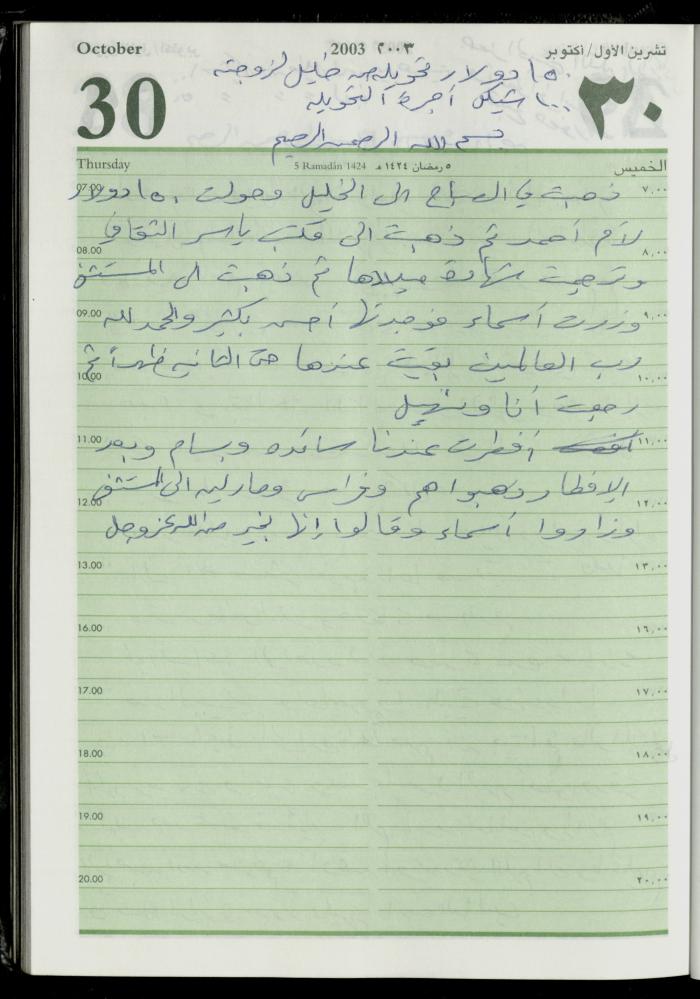 October 2003 ٢٠٠٣ تشرين الأول/أكتوبر
30 ٣٠
١٥٠ دولار تحويله من خليل لزوجته
١٠٠ شيكل أجرة التحويله
بسم الله الرحمن الرحيم
Thursday 5 Ramadân 1424 ٥ رمضان ١٤٢٤ هـ الخميس
07.00 ٧,٠٠
ذهبت في الصباح الى الخليل وحولت ١٥٠ دولار
لأم أحمد ثم ذهبت الى مكتب ياسر الثقافي
08.00 ٨,٠٠
وترجمت شهادة ميلادها ثم ذهبت الى المستشفى
09.00 ٩,٠٠
وزرت أسماء فوجدتها أحسن بكثير والحمد لله
رب العالمين بقيت عندها حتى الثانيه ظهراً ثم
10.00 ١٠,٠٠
رجعت أنا ونهيل
11.00 ١١,٠٠
أفطرت عندنا سائده وبسام وبعد
الإفطار ذهبوا هم وفراس ومارلين الى المستشفى
12.00 ١٢,٠٠
وزاروا أسماء وقالوا إنها بخير من الله عز وجل
13.00 ١٣,٠٠
16.00 ١٦,٠٠
17.00 ١٧,٠٠
18.00 ١٨,٠٠
19.00 ١٩,٠٠
20.00 ٢٠,٠٠